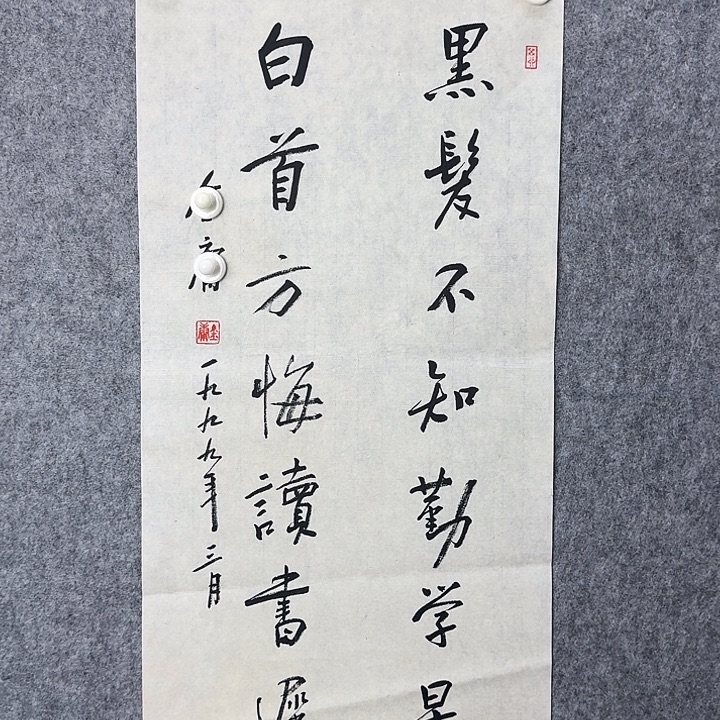 黑髮不知勤学早
白首方悔讀書遲
一九九九年三月